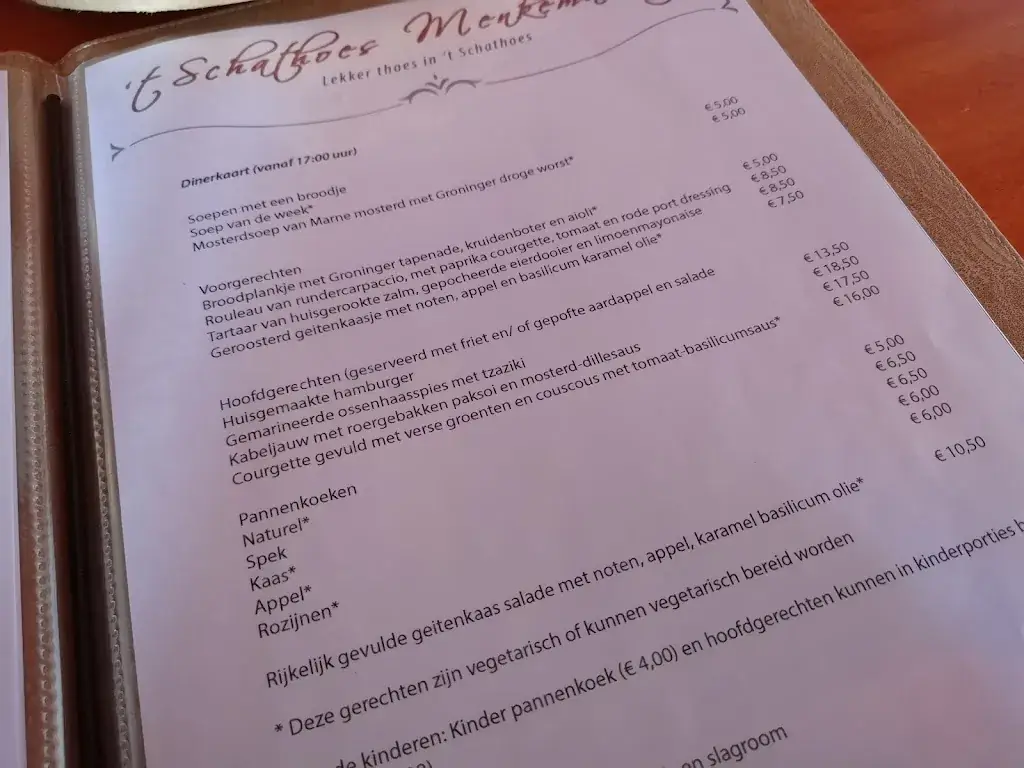 't Schathoes
Lekker thoes in 't Schathoes
Dinerkaart (vanaf 17:00 uur)
Soepen met een broodje
Soep van de week* € 5,00
Mosterdsoep van Marne mosterd met Groninger droge worst* € 5,00
Voorgerechten
Broodplankje met Groninger tapenade, kruidenboter en aioli* € 5,00
Rouleau van rundercarpaccio, met paprika courgette, tomaat en rode port dressing € 8,50
Tartaar van huisgerookte zalm, gepocheerde eierdooier en limoenmayonaise € 8,50
Geroosterd geitenkaasje met noten, appel en basilicum karamel olie* € 7,50
Hoofdgerechten (geserveerd met friet en/ of gepofte aardappel en salade
Huisgemaakte hamburger € 13,50
Gemarineerde ossenhaasspies met tzaziki € 18,50
Kabeljauw met roergebakken paksoi en mosterd-dillesaus € 17,50
Courgette gevuld met verse groenten en couscous met tomaat-basilicumsaus* € 16,00
Pannenkoeken
Naturel* € 5,00
Spek € 6,50
Kaas* € 6,50
Appel* € 6,00
Rozijnen* € 6,00
Rijkelijk gevulde geitenkaas salade met noten, appel, karamel basilicum olie* € 10,50
* Deze gerechten zijn vegetarisch of kunnen vegetarisch bereid worden
de kinderen: Kinder pannenkoek (€ 4,00) en hoofdgerechten kunnen in kinderporties
en slagroom